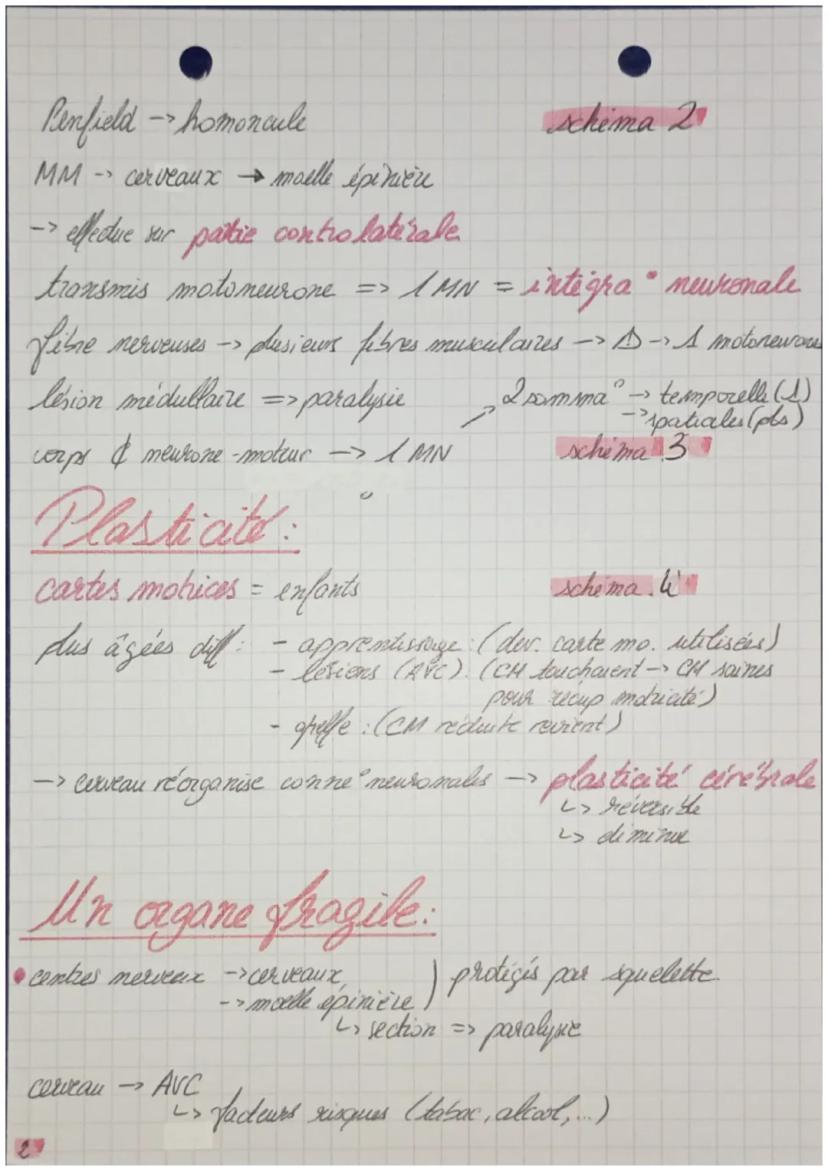 Penfield -> homoncule schéma 2
MM -> cerveaux -> moelle épinière
-> effectue sur partie controlatérale
transmis motoneurone => 1 MN = intégra° neuronale
fibre nerveuses -> plusieurs fibres musculaires -> Δ -> 1 motoneurone
lésion médullaire => paralysie 2 somma° -> temporelle (1)
-> spatiales (pls)
corps ¢ neurone-moteur -> 1 MN schéma 3
Plasticité :
cartes motrices = enfants schéma 4
plus âgées diff : - apprentissage : (dev. carte mo. utilisées)
- lésions (AVC) : (CM touchaient -> CM saines
pour récup motricité)
- greffe : (CM réduite revient)
-> cerveau réorganise conne° neuronales -> plasticité cérébrale
↳ réversible
↳ diminue
Un organe fragile :
• centres nerveux -> cerveaux ) protégés par squelette
-> moelle épinière )
↳ section => paralysie
cerveau -> AVC
↳ facteurs risques (tabac, alcool, ...)
2